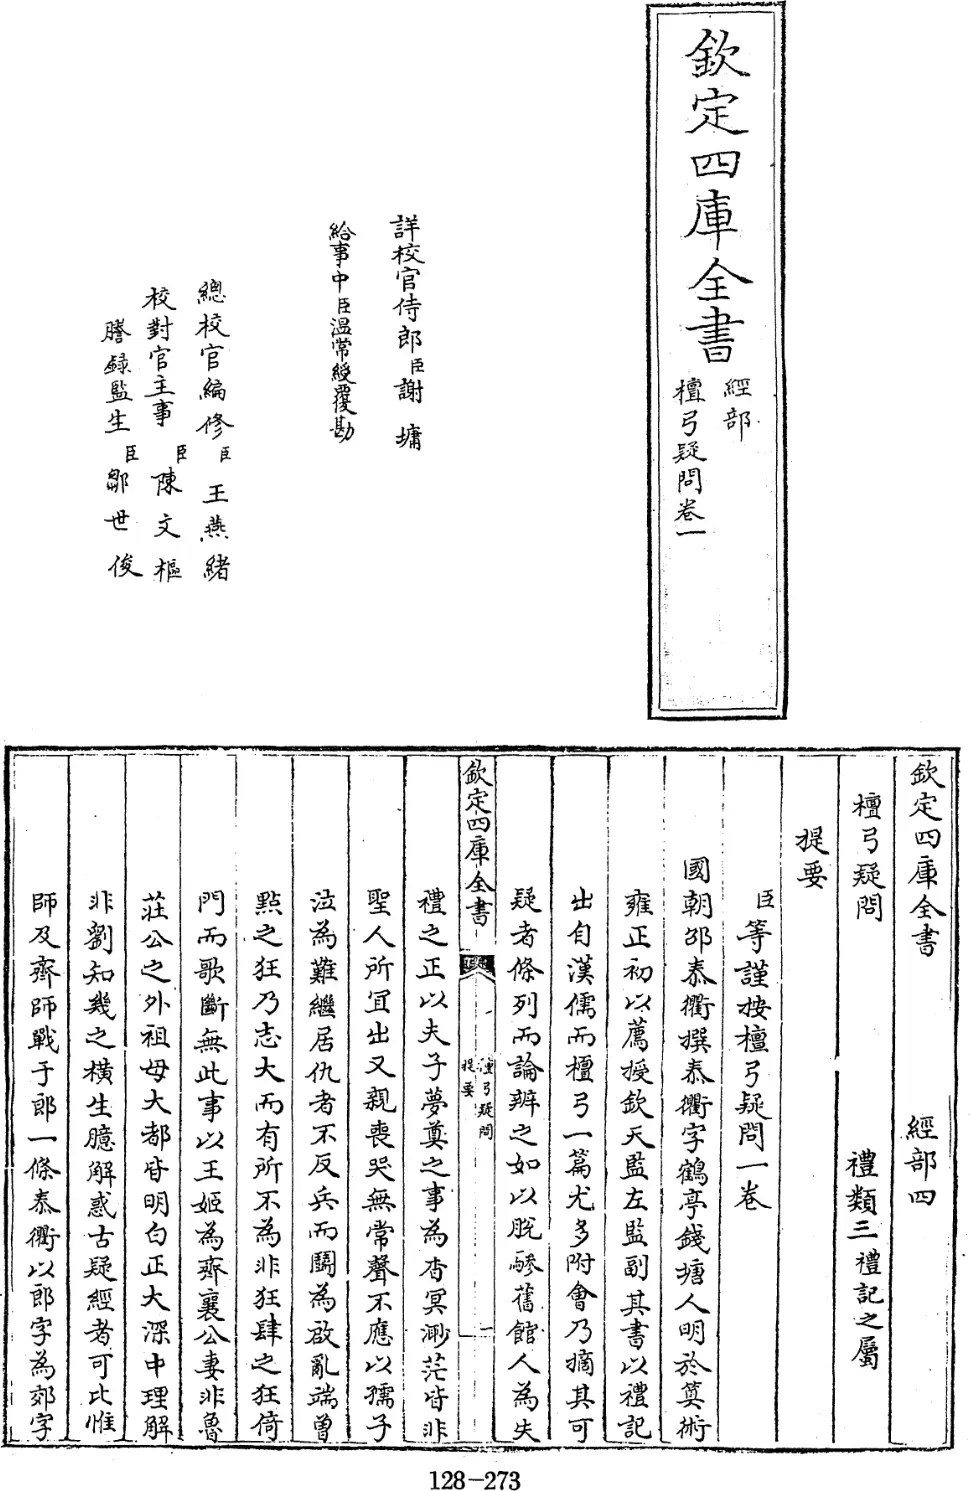 欽定四庫全書
經部
檀弓疑問卷一
詳校官侍郎臣謝墉
給事中臣溫常綬覆勘
總校官編修臣王燕緒
校對官主事臣陳文樞
謄錄監生臣鄒世俊
欽定四庫全書　經部四
檀弓疑問　禮類三禮記之屬
提要
臣等謹按檀弓疑問一卷
國朝邵泰衢撰泰衢字鶴亭錢塘人明於筭術
雍正初以薦授欽天監左監副其書以禮記
出自漢儒而檀弓一篇尤多附會乃摘其可
疑者條列而論辨之如以脫驂舊館人為失
欽定四庫全書
檀弓疑問
提要
一
禮之正以夫子夢奠之事為杳冥渺茫皆非
聖人所宜出又親喪哭無常聲不應以孺子
泣為難繼居仇者不反兵而鬭為啟亂端曾
㸃之狂乃志大而有所不為非狂肆之狂倚
門而歌斷無此事以王姬為齊襄公妻非魯
莊公之外祖母大都皆明白正大深中理解
非劉知幾之橫生臆解惑古疑經者可比惟
師及齊師戰于郎一條泰衢以郎字為郊字
128-273